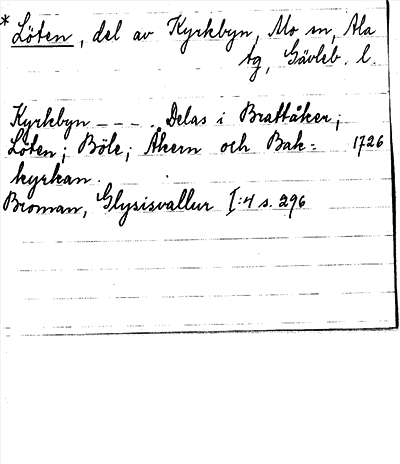 * Löten, del av Kyrkbyn, Mo sn, Ala
tg, Gävleb. l.
Kyrkbyn – – – . Delas i Brattåker;
Löten; Böle; Åkern och Bak= 1726
kyrkan.
Broman, Glysisvallur I:4 s. 296